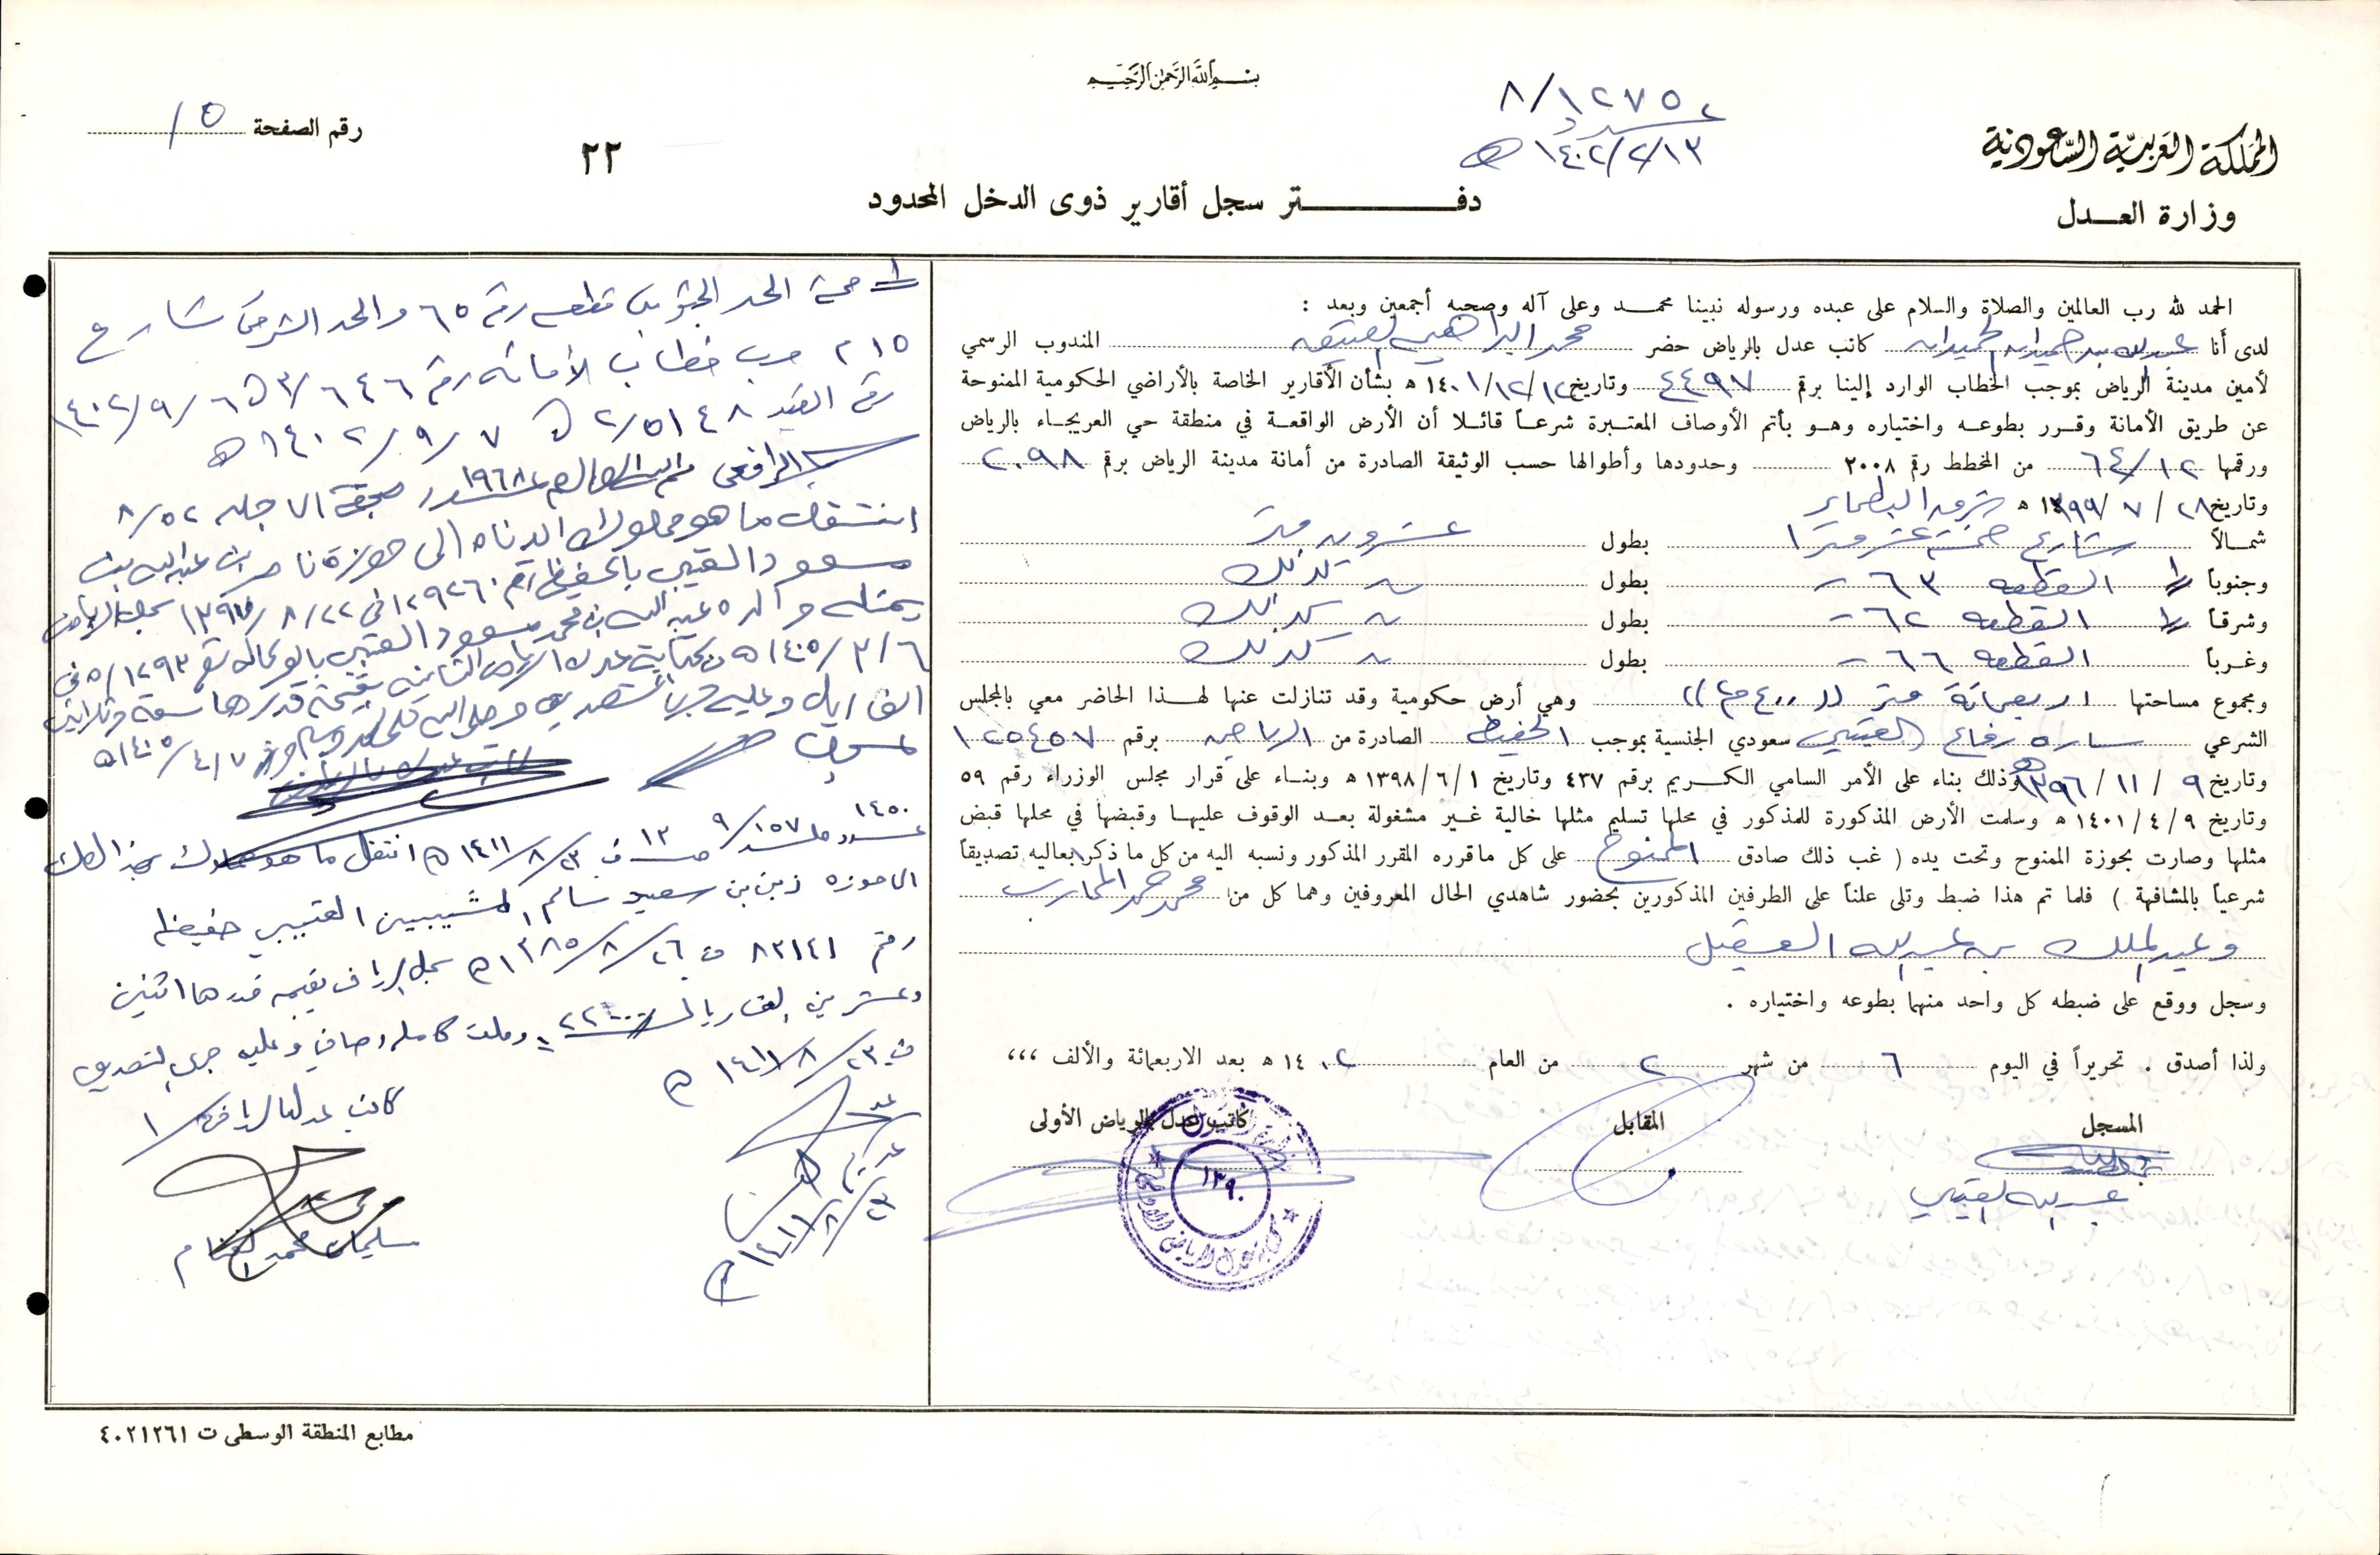 بسم الله الرحمن الرحيم
المملكة العربية السعودية
وزارة العــدل
٨/١٢٧٥٢
١٤٠٢/٢/١٣ هـ
٢٢
رقم الصفحة ١٥
دفـــتر سجل أقارير ذوى الدخل المحدود
الحمد لله رب العالمين والصلاة والسلام على عبده ورسوله نبينا محمـد وعلى آله وصحبه أجمعين وبعد :
لدى أنا عبدالله بن حميدان الحميدان كاتب عدل بالرياض حضر محمد البراهيم العتيقه المندوب الرسمي
لأمين مدينة الرياض بموجب الخطاب الوارد إلينا برقم ٤٤٩٧ وتاريخ ١٤٠١/١٢/١٢ هـ بشأن الأقارير الخاصة بالأراضي الحكومية الممنوحة
عن طريق الأمانة وقـرر بطوعـه واختياره وهـو بأتم الأوصاف المعتـبرة شرعـاً قائـلا أن الأرض الواقعـة في منطقة حي العريجـاء بالرياض
ورقمها ٦٤/١٢ من المخطط رقم ٢٠٠٨ وحدودها وأطوالها حسب الوثيقة الصادرة من أمانة مدينة الرياض برقم ٢٠٩٨
وتاريخ ٢٨/ ٧ /١٣٩٩ هـ شرق البطحاء
شمـالاً شارع خمسة عشر مترا بطول عشرون متر
وجنوباً القطعه ٦٣ بطول كذلك
وشرقـاً القطعه ٦٢ بطول كذلك
وغـرباً القطعه ٦٦ بطول كذلك
ومجموع مساحتها اربعمائة متر ((٤٠٠م٢)) وهي أرض حكومية وقد تنازلت عنها لهـذا الحاضر معي بالمجلس
الشرعي ساره رفاع العتيبي سعودي الجنسية بموجب الحفيظه الصادرة من الرياض برقم ١٢٥٤٥٧
وتاريخ ٩ / ١١ / ١٣٩٦هـ وذلك بناء على الأمر السامي الكـريم برقم ٤٣٧ وتاريخ ١٣٩٨/٦/١ هـ وبنـاء على قرار مجلس الوزراء رقم ٥٩
وتاريخ ١٤٠١/٤/٩ هـ وسلمت الأرض المذكورة للمذكور في محلها تسليم مثلها خالية غـير مشغولة بعـد الوقوف عليهـا وقبضهـا في محلها قبض
مثلها وصارت بحوزة الممنوح وتحت يده ( غب ذلك صادق الممنوح على كل ماقرره المقرر المذكور ونسبه اليه من كل ما ذكر بعاليه تصديقاً
شرعياً بالمشافهة ) فلما تم هذا ضبط وتلى علناً على الطرفين المذكورين بحضور شاهدي الحال المعروفين وهما كل من محمد حمد المحارب
وعبدالملك بن عبدالله العقيل
وسجل ووقع على ضبطه كل واحد منهما بطوعه واختياره .
ولذا أصدق . تحريراً في اليوم ٦ من شهر ٢ من العام ١٤٠٢ هـ بعد الاربعمائة والألف ،،،
المسجل
المقابل
كاتب عدل بالرياض الأولى
عبدالله العتيبي
١٣٩٠
صحة الحد الجنوبي قطعه رقم ٦٥ والحد الشرقي شارع
١٥م حسب خطاب الأمانة رقم ٣/٦٤٦ في ١٤٠٢/٩/٦
رقم القيد ٢/٥١٤٨ في ١٤٠٢/٩/٧هـ
انتقل ما هو مملوك ادناه الى حوزة ناصر بن عبدالله بن
مسعود العتيبي بالحفيظه رقم ١٢٩٢٦٠ في ٨/٢٢/ سجل الرياض
يمثله والده عبدالله بن محمد مسعود العتيبي بالوكاله رقم ٥/١٢٩٣ في
١٤٠٥/٣/٦هـ من كتابة عدل الرياض الثانيه بقيمة قدرها تسعة وثلاثين
الف ريال وعليه جرى التصديق وصلى الله على محمد وسلم ١٤٠٥/٤/٧هـ
١٤٥٠
في ١٤١١/٨/٢٣هـ انتقل ما هو مملوك بهذا الصك
الى حوزه زبن بن سعيد سالم الشيبيين العتيبي حفيظه
رقم ٨٢١٤١ في ١٣٨٥/٨/٢٦هـ سجل الرياض بقيمه قدرها اثنين
وعشرين الف ريال ٢٢٠٠٠ وصلت كامله وعليه جرى التصديق
في ١٤١١/٨/٢٣هـ
كاتب عدل الرياض ١
سليمان محمد الغنام
١٤١١/٨/٢٣هـ
مطابع المنطقة الوسطى ت ٤٠٢١٢٦١